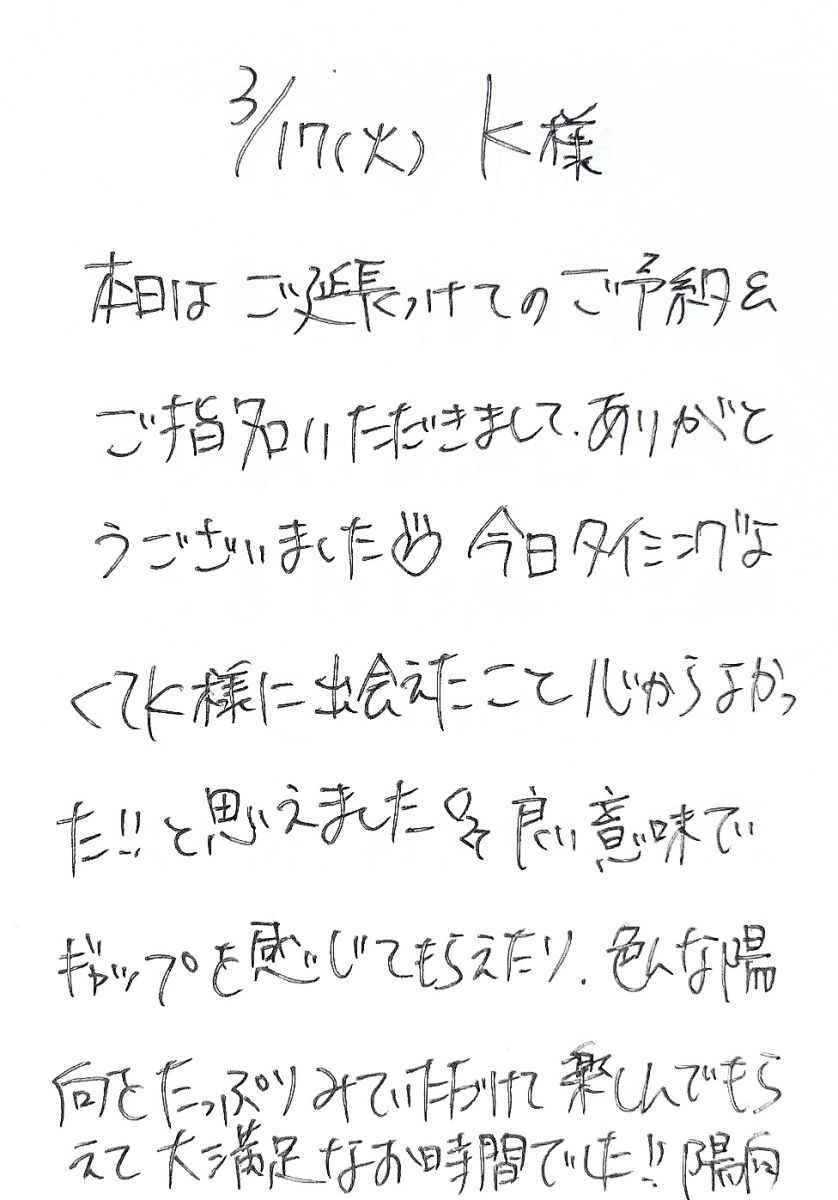 3/17(火) K様
本日はご延長つけてのご予約&
ご指名いただきまして、ありがと
うございました 今日タイミングよ
くてK様に出会えたこと心からよかっ
た!!と思えました 良い意味で
ギャップを感じてもらえたり、色んな陽
向をたっぷりみていただけて楽しんでもら
えて大満足なお時間でした!! 陽向